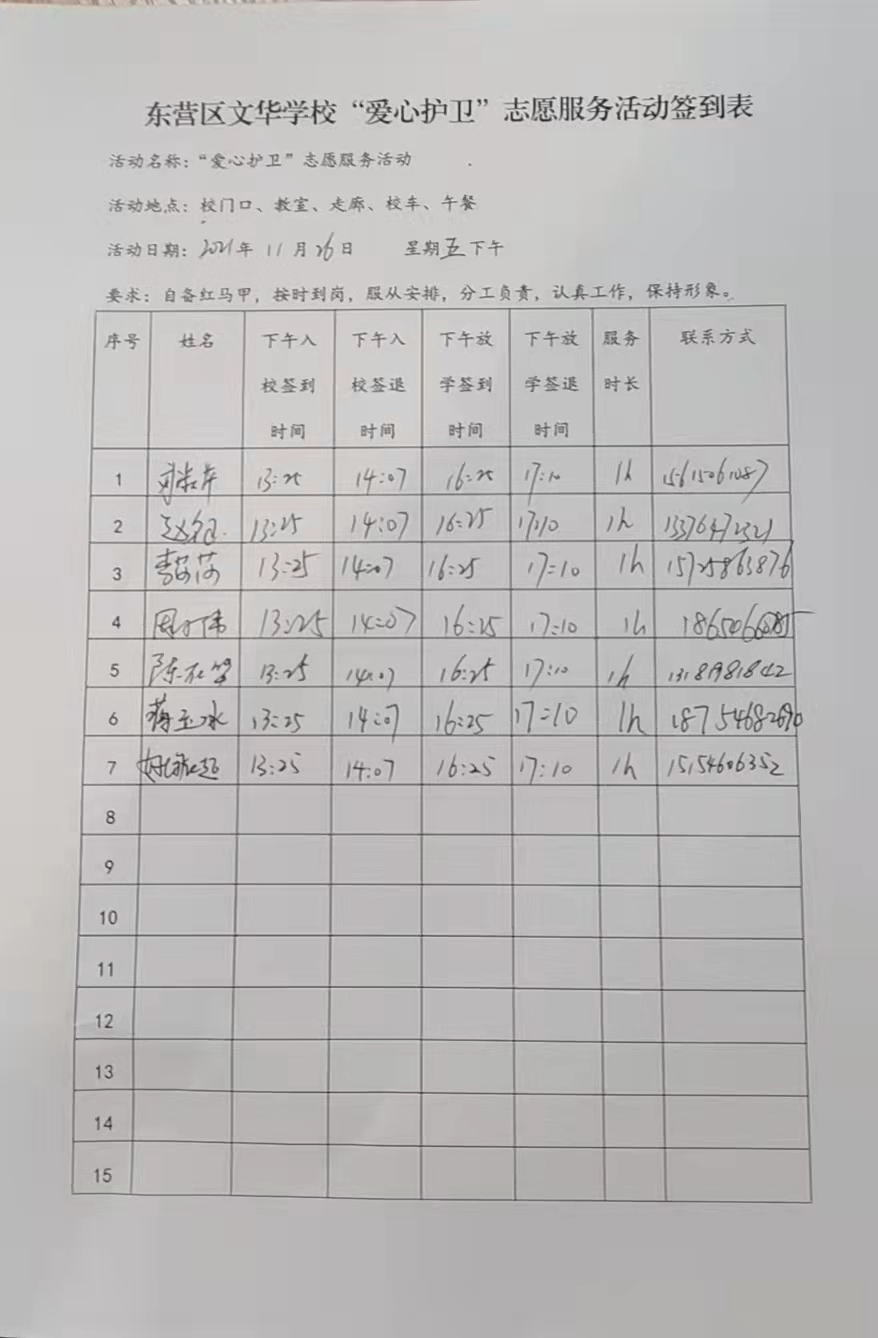 东营区文华学校“爱心护卫”志愿服务活动签到表
活动名称：“爱心护卫”志愿服务活动
活动地点：校门口、教室、走廊、校车、午餐
活动日期：2021年 11月26日 星期五下午
要求：自备红马甲，按时到岗，服从安排，分工负责，认真工作，保持形象。
序号 姓名 下午入校签到时间 下午入校签退时间 下午放学签到时间 下午放学签退时间 服务时长 联系方式
1 13:25 14:07 16:25 17:10 1h 15615061087
2 13:25 14:07 16:25 17:10 1h 13376472321
3 13:25 14:07 16:25 17:10 1h 15725863876
4 13:25 14:07 16:25 17:10 1h
5 13:25 14:07 16:25 17:10 1h
6 蒋玉冰 13:25 14:07 16:25 17:10 1h 18754682690
7 13:25 14:07 16:25 17:10 1h 15154606352
8
9
10
11
12
13
14
15